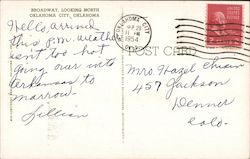 BROADWAY, LOOKING NORTH
OKLAHOMA CITY, OKLAHOMA
Hello, arrived
this p.m. weather
isnt too hot
going our into
Arkansas to
marrow.
Lillian
OKLAHOMA CITY
1954
POST CARD
Mrs. Hazel
457 Jackson
Denver
Colo.